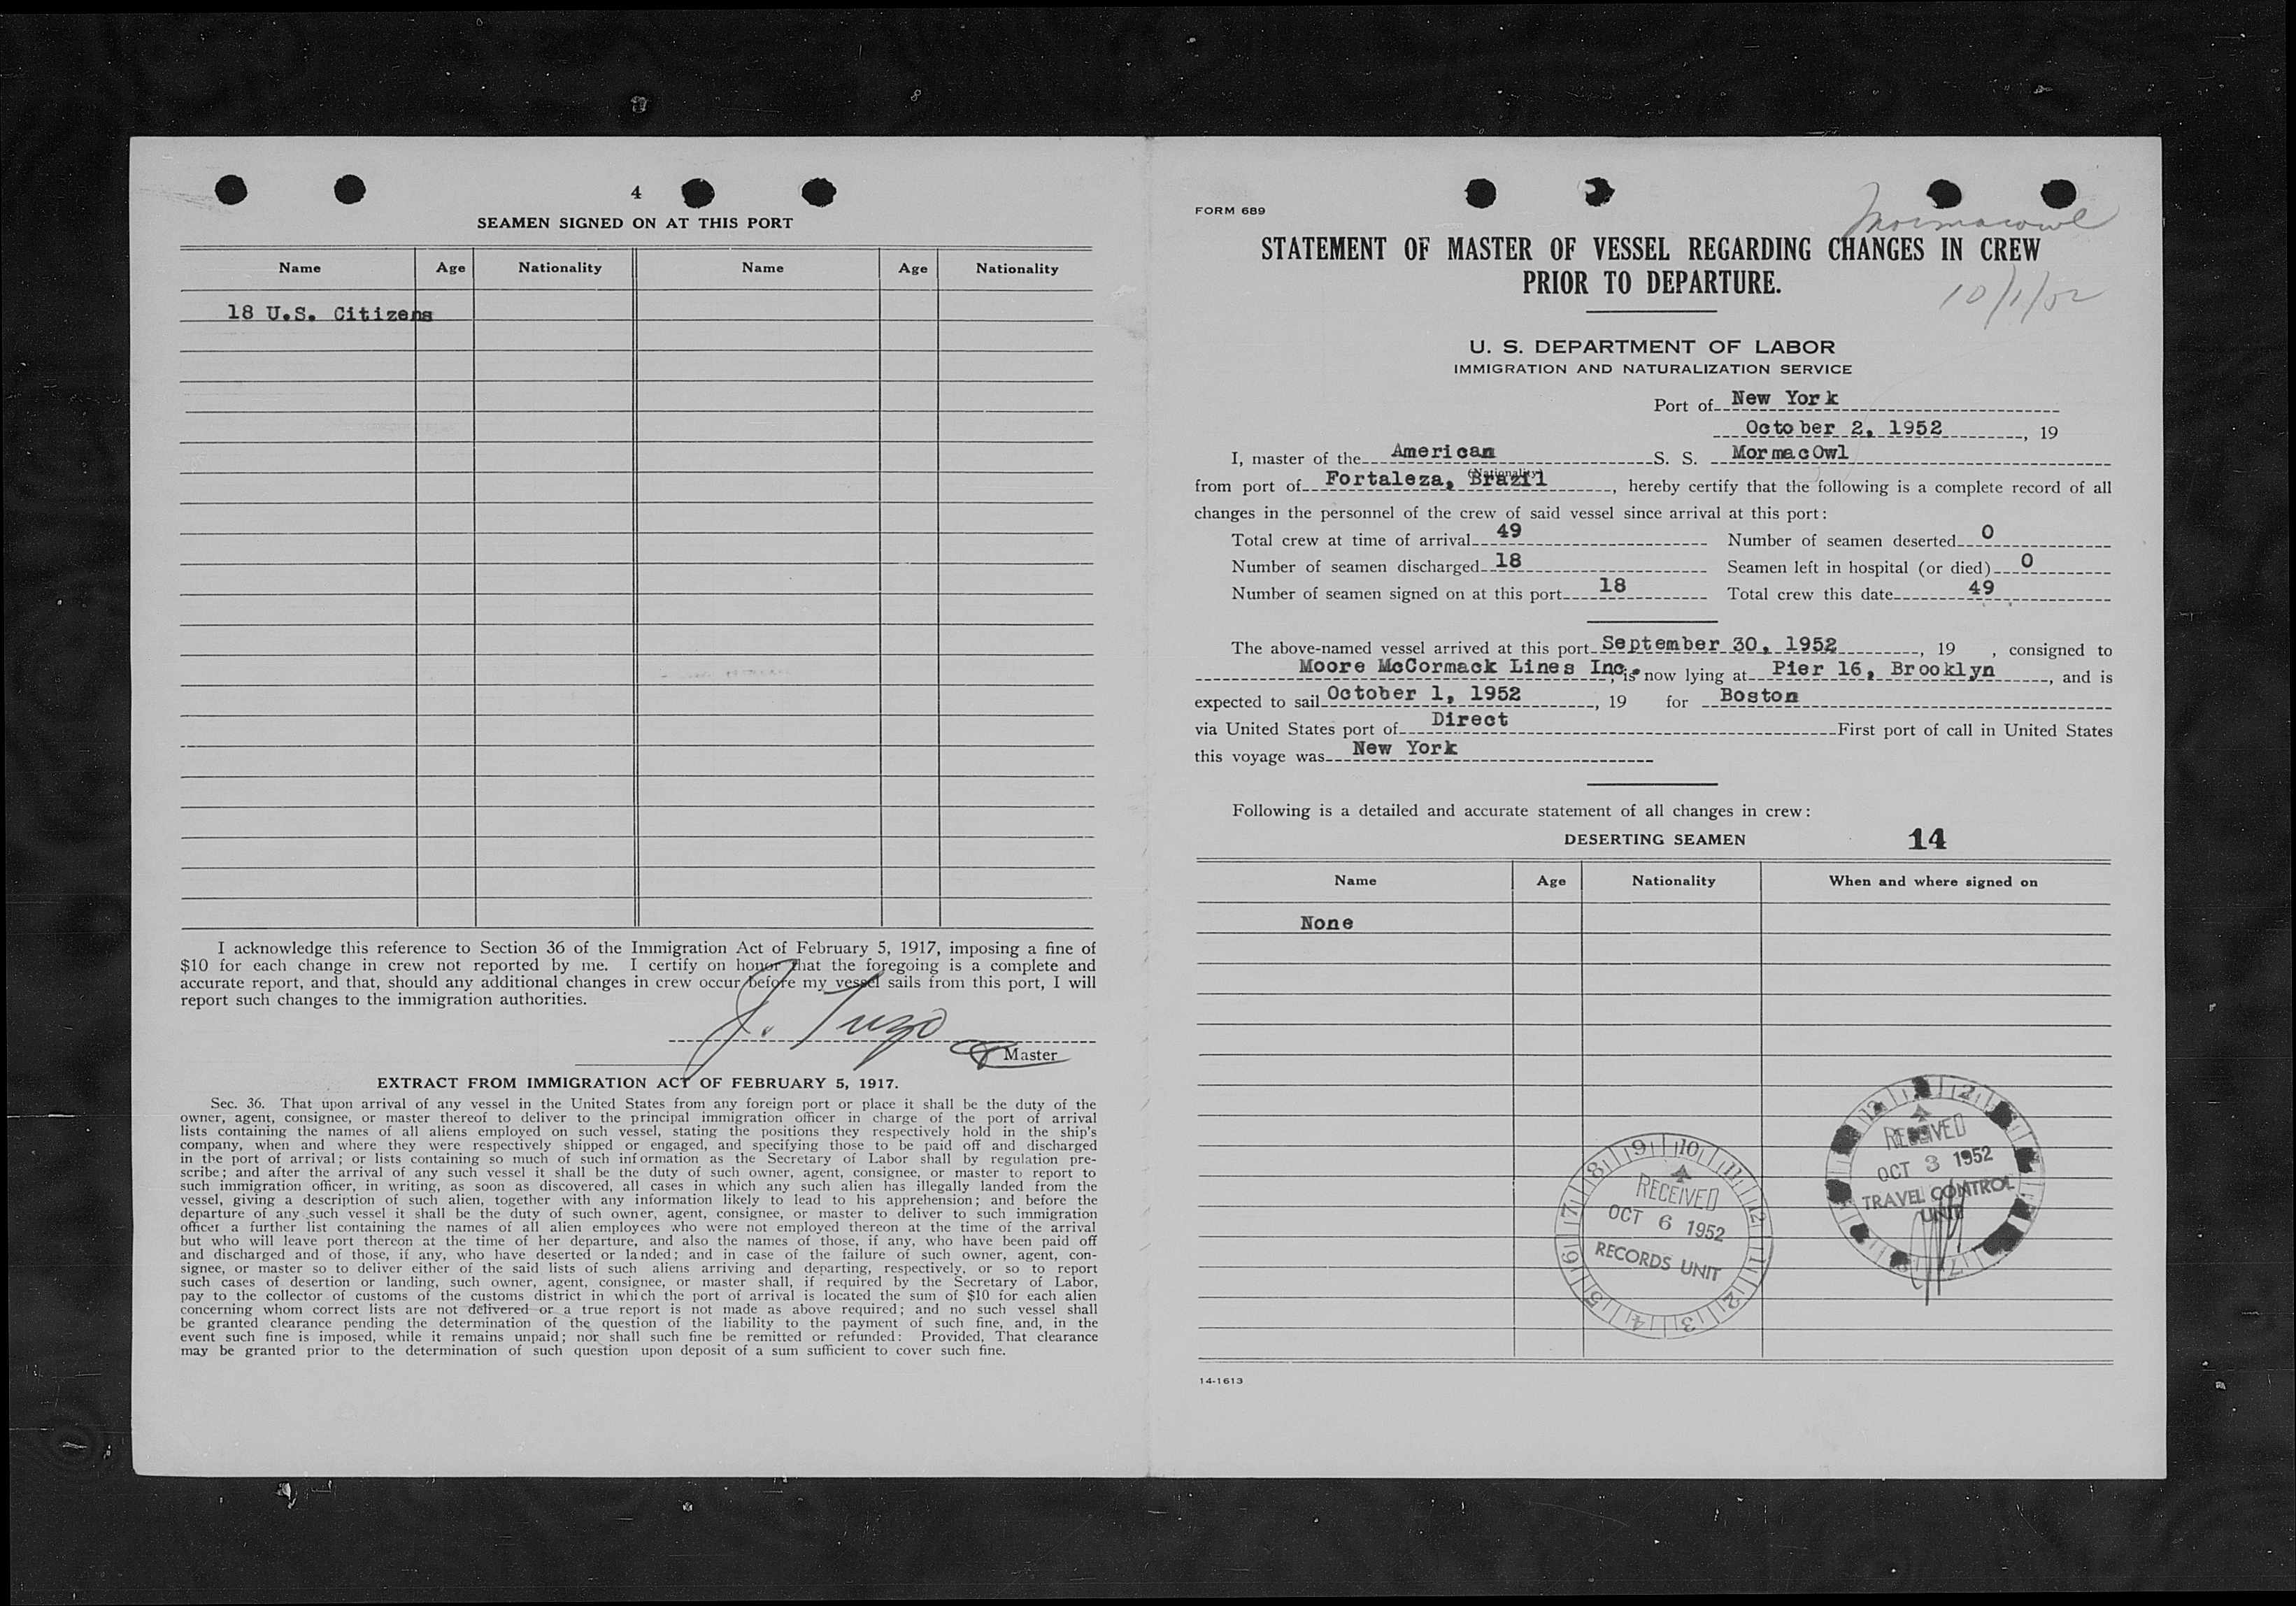 4
SEAMEN SIGNED ON AT THIS PORT
Name Age Nationality Name Age Nationality
18 U.S. Citizens
I acknowledge this reference to Section 36 of the Immigration Act of February 5, 1917, imposing a fine of
$10 for each change in crew not reported by me. I certify on honor that the foregoing is a complete and
accurate report, and that, should any additional changes in crew occur before my vessel sails from this port, I will
report such changes to the immigration authorities.
J. Tuzo
Master
EXTRACT FROM IMMIGRATION ACT OF FEBRUARY 5, 1917.
Sec. 36. That upon arrival of any vessel in the United States from any foreign port or place it shall be the duty of the
owner, agent, consignee, or master thereof to deliver to the principal immigration officer in charge of the port of arrival
lists containing the names of all aliens employed on such vessel, stating the positions they respectively hold in the ship's
company, when and where they were respectively shipped or engaged, and specifying those to be paid off and discharged
in the port of arrival; or lists containing so much of such information as the Secretary of Labor shall by regulation pre-
scribe; and after the arrival of any such vessel it shall be the duty of such owner, agent, consignee, or master to report to
such immigration officer, in writing, as soon as discovered, all cases in which any such alien has illegally landed from the
vessel, giving a description of such alien, together with any information likely to lead to his apprehension; and before the
departure of any such vessel it shall be the duty of such owner, agent, consignee, or master to deliver to such immigration
officer a further list containing the names of all alien employees who were not employed thereon at the time of the arrival
but who will leave port thereon at the time of her departure, and also the names of those, if any, who have been paid off
and discharged and of those, if any, who have deserted or landed; and in case of the failure of such owner, agent, con-
signee, or master so to deliver either of the said lists of such aliens arriving and departing, respectively, or so to report
such cases of desertion or landing, such owner, agent, consignee, or master shall, if required by the Secretary of Labor,
pay to the collector of customs of the customs district in which the port of arrival is located the sum of $10 for each alien
concerning whom correct lists are not delivered or a true report is not made as above required; and no such vessel shall
be granted clearance pending the determination of the question of the liability to the payment of such fine, and, in the
event such fine is imposed, while it remains unpaid; nor shall such fine be remitted or refunded: Provided, That clearance
may be granted prior to the determination of such question upon deposit of a sum sufficient to cover such fine.
FORM 689
Mormacowl
STATEMENT OF MASTER OF VESSEL REGARDING CHANGES IN CREW
PRIOR TO DEPARTURE.
10/1/52
U. S. DEPARTMENT OF LABOR
IMMIGRATION AND NATURALIZATION SERVICE
Port of New York
October 2, 1952, 19
I, master of the American S. S. MormacOwl
(Nationality)
from port of Fortaleza, Brazil, hereby certify that the following is a complete record of all
changes in the personnel of the crew of said vessel since arrival at this port:
Total crew at time of arrival 49 Number of seamen deserted 0
Number of seamen discharged 18 Seamen left in hospital (or died) 0
Number of seamen signed on at this port 18 Total crew this date 49
The above-named vessel arrived at this port September 30, 1952, 19 , consigned to
Moore McCormack Lines Inc., is now lying at Pier 16, Brooklyn, and is
expected to sail October 1, 1952, 19 for Boston
via United States port of Direct First port of call in United States
this voyage was New York
Following is a detailed and accurate statement of all changes in crew:
DESERTING SEAMEN 14
Name Age Nationality When and where signed on
None
RECEIVED
OCT 3 1952
TRAVEL CONTROL
UNIT
RECEIVED
OCT 6 1952
RECORDS UNIT
14-1613